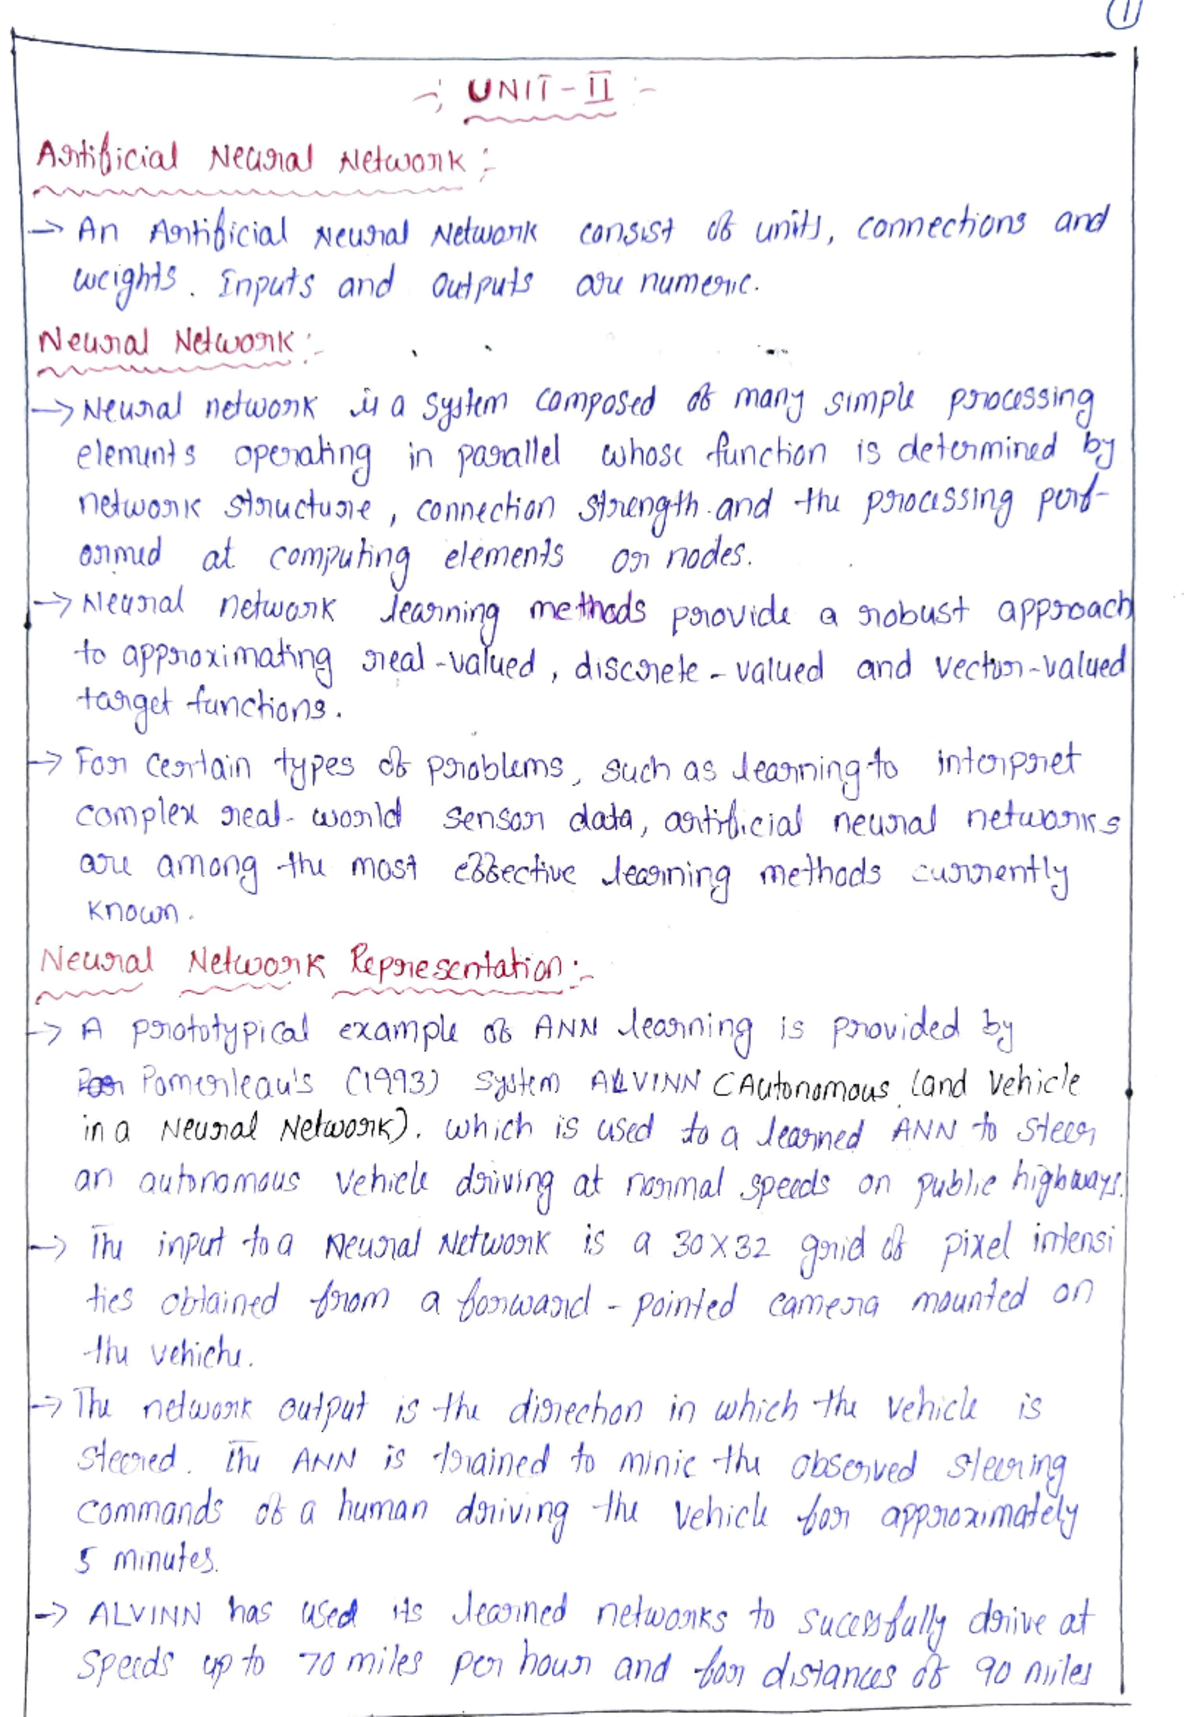 1
-: UNIT-II :-
Artificial Neural Network :-
→ An Artificial Neural Network consist of units, connections and
weights. Inputs and outputs are numeric.
Neural Network :-
→ Neural network is a system composed of many simple processing
elements operating in parallel whose function is determined by
network structure, connection strength and the processing perf-
ormed at computing elements or nodes.
→ Neural network learning methods provide a robust approach
to approximating real-valued, discrete-valued and vector-valued
target functions.
→ For certain types of problems, such as learning to interpret
complex real-world sensor data, artificial neural networks
are among the most effective learning methods currently
known.
Neural Network Representation :-
→ A prototypical example of ANN learning is provided by
Pomerleau's (1993) system ALVINN (Autonomous land vehicle
in a Neural Network). which is used to a learned ANN to steer
an autonomous vehicle driving at normal speeds on public highways.
→ The input to a Neural Network is a 30X32 grid of pixel intensi
ties obtained from a forward-pointed camera mounted on
the vehicle.
→ The network output is the direction in which the vehicle is
steered. The ANN is trained to minic the observed steering
commands of a human driving the vehicle for approximately
5 minutes.
→ ALVINN has used its learned networks to sucessfully drive at
speeds up to 70 miles per hour and for distances of 90 miles